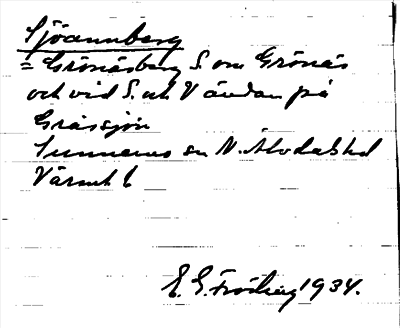 Sjöannberg
= Grönåsberg S. om Grönås
och vid S. och V ändan på
Gråssjön
Sunnemo sn N. Älvdals hd
Värml
E. G. Fröberg 1934.